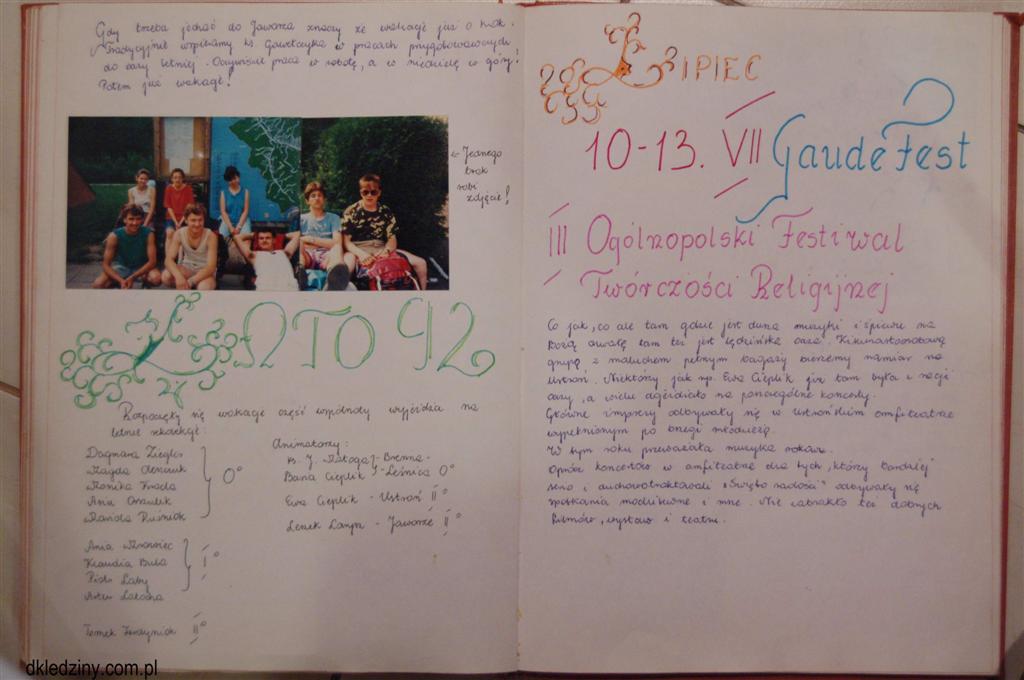 Gdy trzeba jechać do Jaworza znaczy że wakacje już o krok.
Tradycyjnie wspieramy ks. Gawełczyka w pracach przygotowawczych
do oazy letniej. Oczywiście praca w sobotę, a w niedzielę w góry!
Potem już wakacje!
← Jednego
brak
robi
zdjęcie!
LATO 92
Rozpoczęły się wakacje część wspólnoty wyjeżdża na
letnie rekolekcje:
Dagmara Ziegler
Magda
Monika
Ania
Mariola Kuśnick
0°
Ania
Klaudia Buba
Piotr Laby
Artur Latocha
I°
Tomek II°
Animatorzy:
K. J. Ratogaj - Brenna
Basia Cieplik - Leśnica 0°
Ewa Cieplik - Ustroń II°
Leszek - Jaworze II°
LIPIEC
10-13. VII Gaude Fest
III Ogólnopolski Festiwal
Twórczości Religijnej
Co jak, co ale tam gdzie jest dużo muzyki i śpiewu na
Bożą chwałę tam też jest lędzińska oaza. Kilkunastoosobową
grupą z maluchem pełnym bagaży bierzemy namiar na
Ustroń. Niektórzy jak np. Ewa Cieplik już tam była z racji
oazy, a wielu dojeżdżało na poszczególne koncerty.
Główne imprezy odbywały się w Ustrońskim amfiteatrze
wypełnionym po brzegi młodzieżą.
W tym roku przeważała muzyka
Oprócz koncertów w amfiteatrze dla tych, którzy bardziej
"Święto radości" odbywały się
spotkania modlitewne i inne. Nie zabrakło też dobrych
filmów, wystaw i teatru.
dkledziny.com.pl